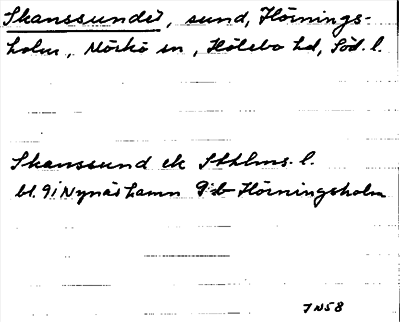 Skanssundet, sund, Hörnings-
holm, Mörkö sn, Hölebo hd, Söd. l.
Skanssund ek Sthlms. l.
bl. 9i Nynäshamn 9i b Hörningsholm
JN58